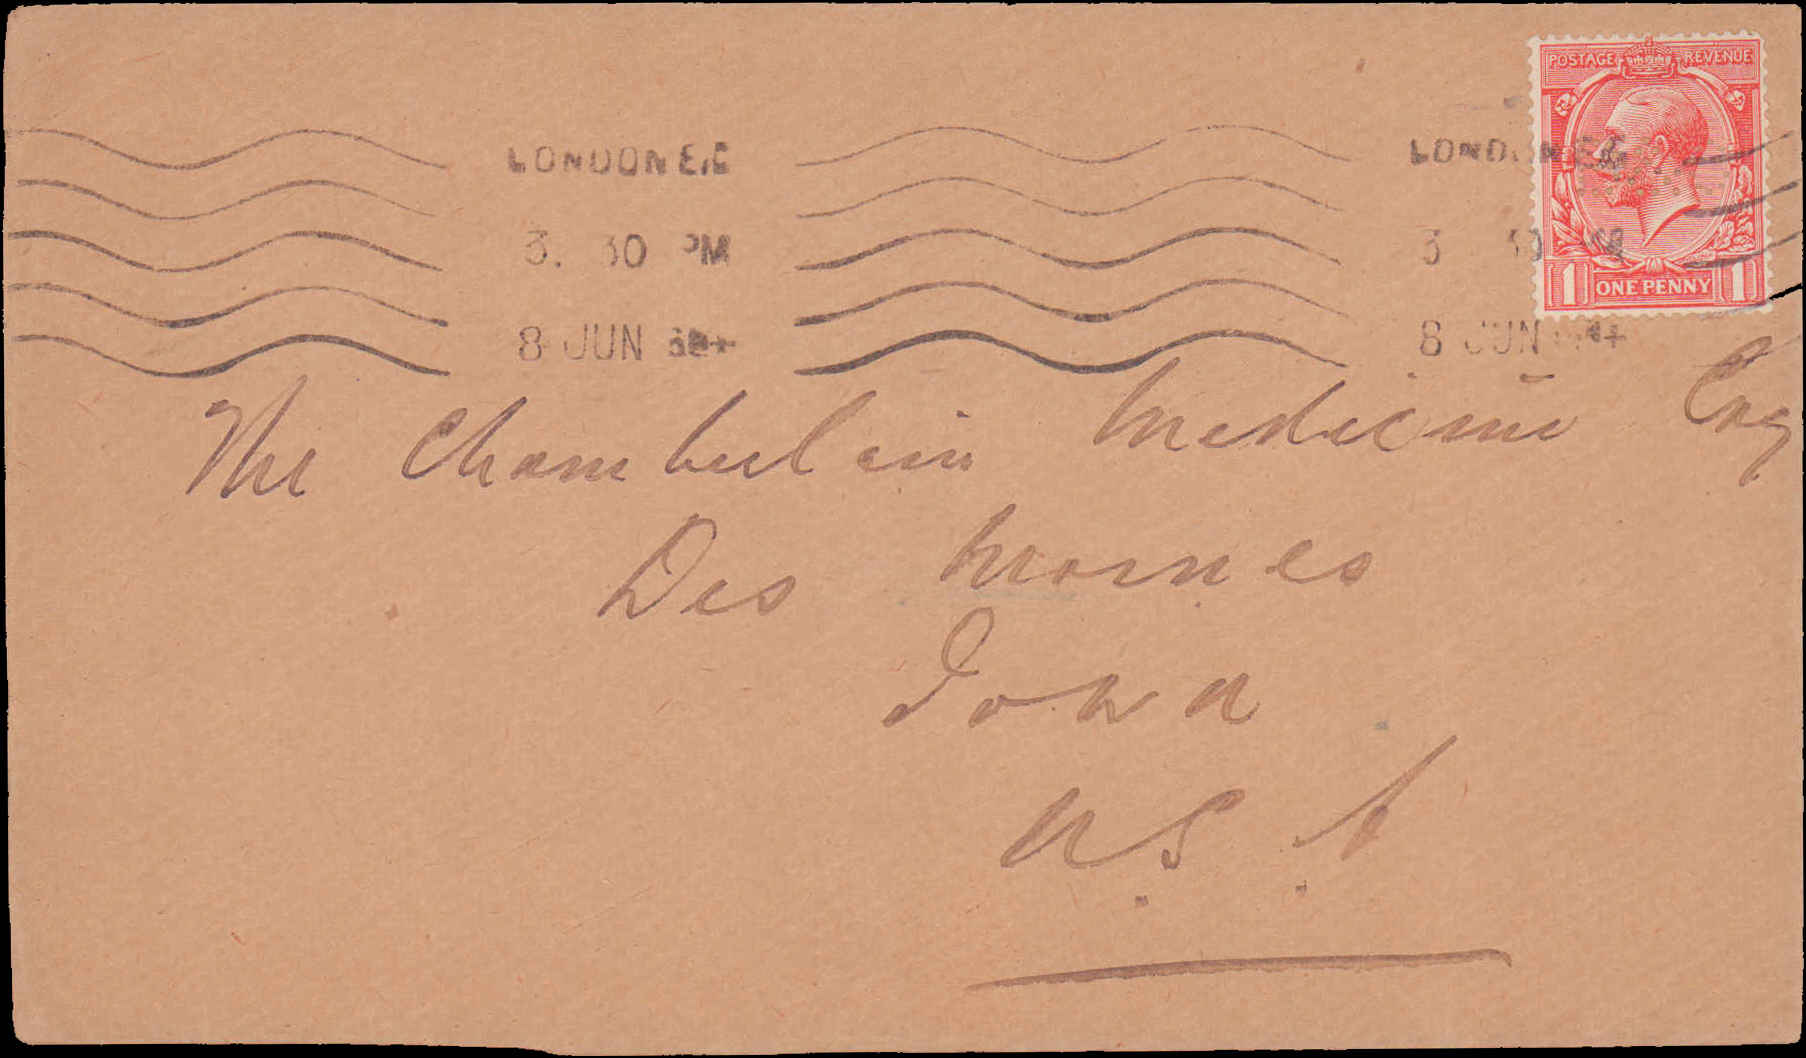 POSTAGE REVENUE
LONDON E.C
3. 30 PM
8 JUN
LONDON
3 30
8 JUN
1 ONE PENNY 1
The Chamberlain Medicine Coy
Des Moines
Iowa
U.S.A